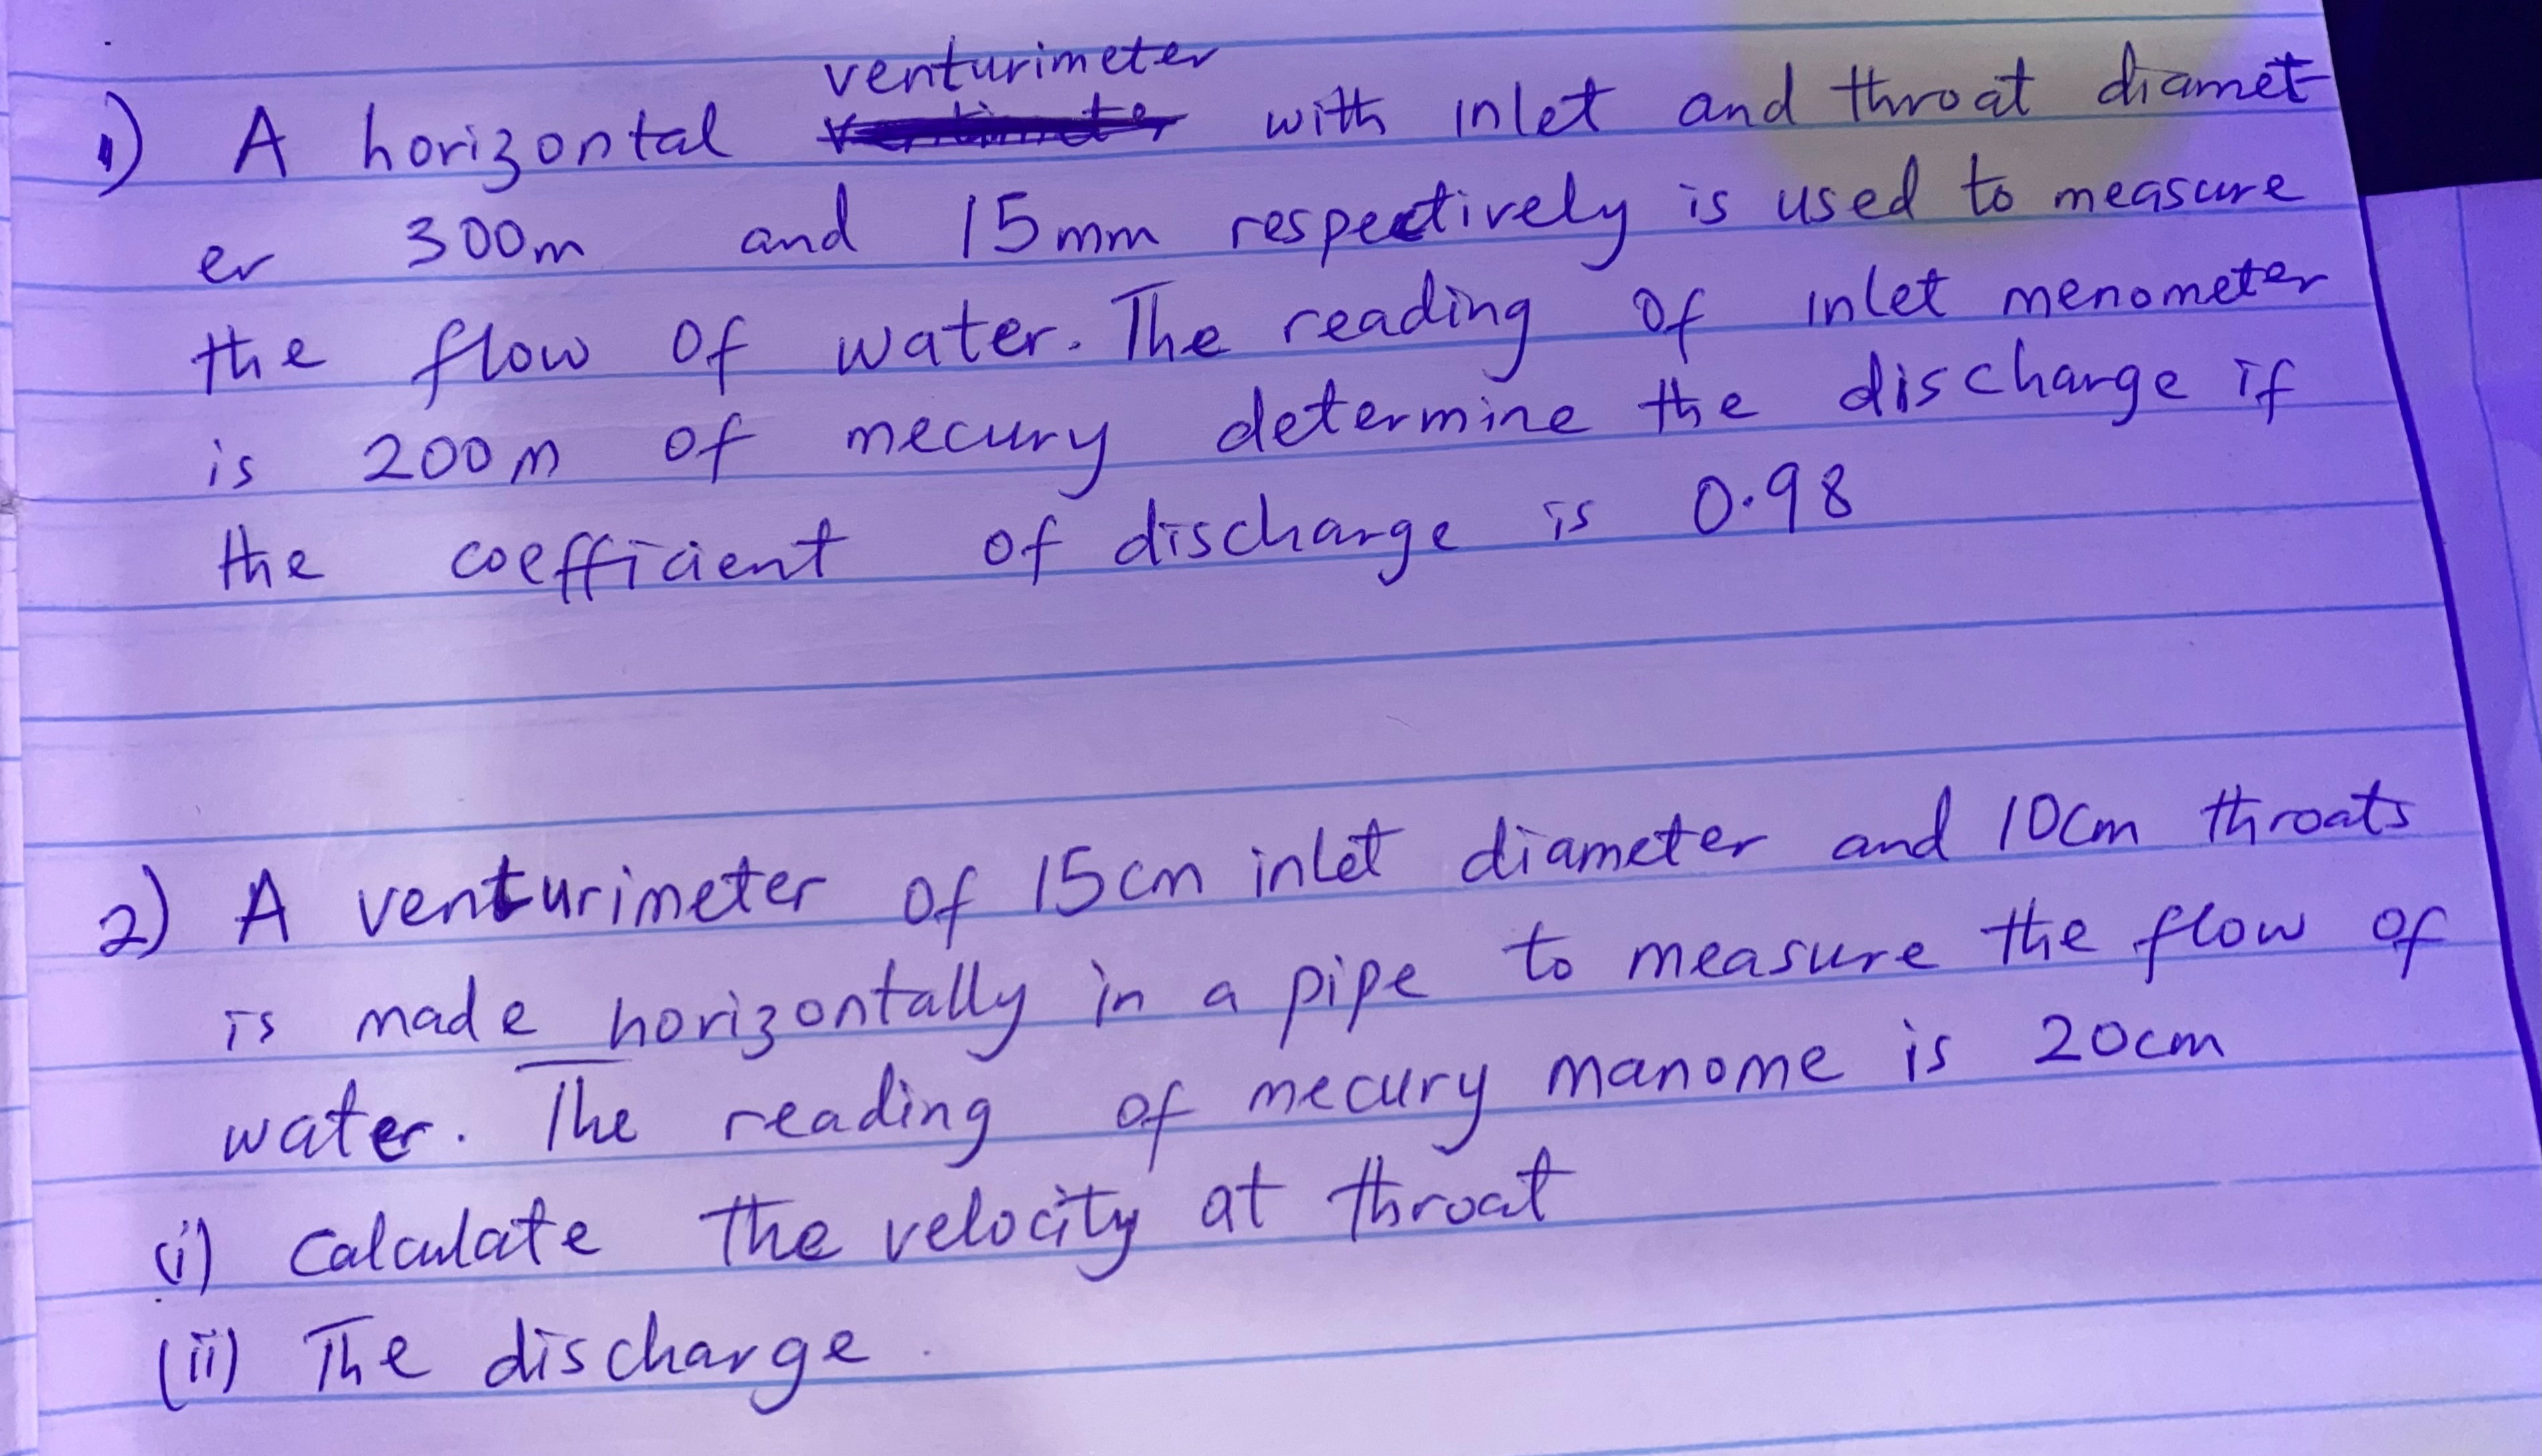 venturimeter
1) A horizontal with inlet and throat diamet
er 300m and 15mm respectively is used to measure
the flow of water. The reading of inlet menometer
is 200m of mecury determine the discharge if
the coefficient of discharge is 0.98
2) A venturimeter of 15cm inlet diameter and 10cm throats
is made horizontally in a pipe to measure the flow of
water. The reading of mecury manome is 20cm
(i) Calculate the velocity at throat
(ii) The discharge.